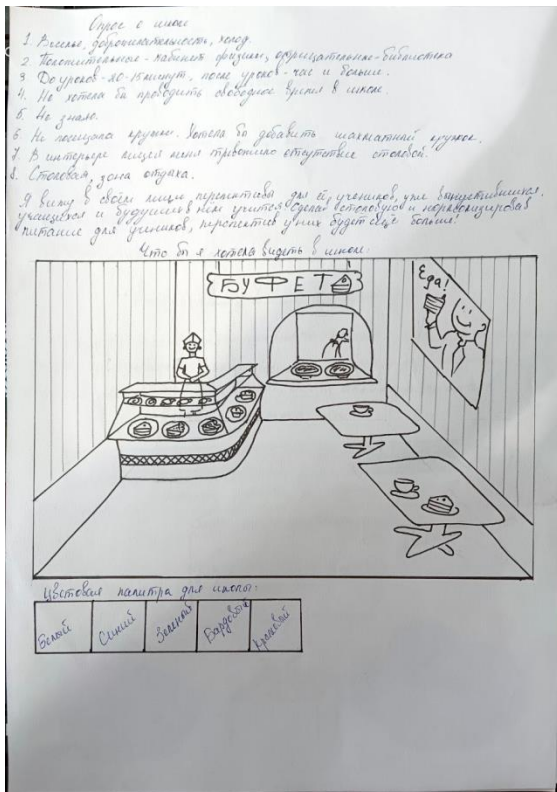 Опрос о школе
1. Веселье, доброжелательность, холод.
2. Положительные - кабинет физики, отрицательные - библиотека
3. До уроков - 10-15 минут, после уроков - час и больше.
4. Не хотела бы проводить свободное время в школе.
5. Не знаю.
6. Не посещала кружки. Хотела бы добавить шахматный кружок.
7. В интерьере лицея меня тревожило отсутствие столовой.
8. Столовая, зона отдыха.
Я вижу в своём лицее перспективы для её учеников, уже выпустившихся,
учащихся и будущих в нём учится. Сделав столовую и нормализировав
питание для учеников, перспектив у них будет ещё больше!
Что бы я хотела видеть в школе:
БУФЕТ
Еда!
Цветовая палитра для школы:
Белый Синий Зеленый Бардовый